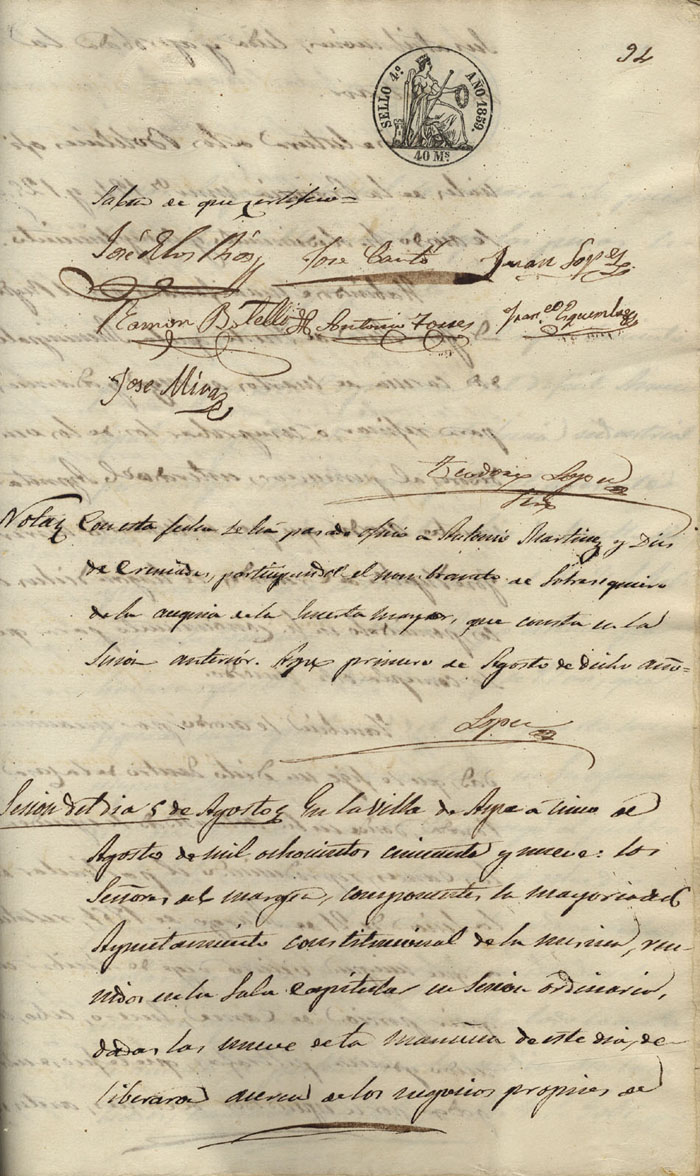 94
SELLO 4º AÑO 1859.
40 Ms
Saber de que certifico=
José
José Cantó
Juan Lopez
Ramon Botella
Antonio Torres
Franco
Jose Mira
Lopez
Nota
Con esta fecha se há pasado oficio a Antonio Martinez y Dias
de Cremades, participandole el nombramto de Sobrasequiero
de la asequia de la huerta mayor, que consta en la
Sesion anterior. Aspe primero de Agosto de dicho año=
Lopez
Sesion del dia 5 de Agosto
En la villa de Aspe a cinco de
Agosto de mil ochocientos cincuenta y nueve: los
Señores del margen, componentes la mayoria del
Ayuntamiento constitucional de la misma, reu-
nidos en la Sala capitular en sesion ordinaria,
dadas las nueve de la mañana de este dia, de-
liberaron acerca de los negocios propios de